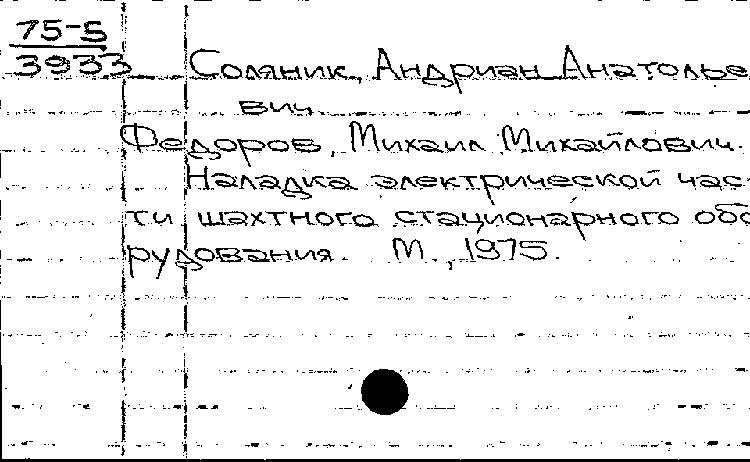 75-5
3933
Соляник, Андриан Анатолье
вич
Федоров, Михаил Михайлович.
Наладка электрической час-
ти шахтного стационарного обо
рудования. М., 1975.